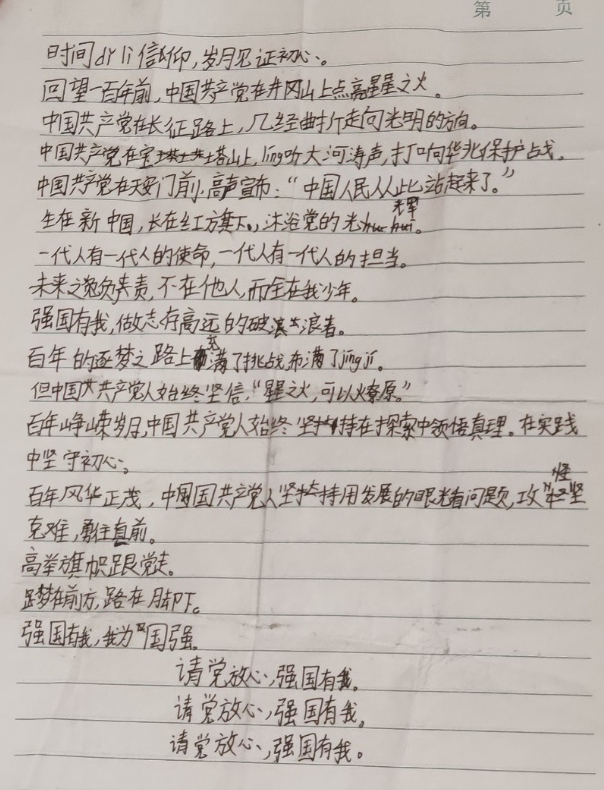 第 页
时间dǐ lì信仰，岁月见证初心。
回望一百年前，中国共产党在井冈山上点亮星星之火。
中国共产党在长征路上，几经曲折走向光明的方向。
中国共产党在宝塔山上，líng听大河涛声，打响华北保护占战。
中国共产党在天安门前，高声宣布：“中国人民从此站起来了。”
生在新中国，长在红方旗下，沐浴党的光辉hui。
一代人有一代人的使命，一代人有一代人的担当。
未来之责，不在他人，而全在我少年。
强国有我，做志存高远的破浪者。
百年的逐梦之路上充满了挑战，布满了jīng jí。
但中国共产党人始终坚信，“星星之火，可以燎原。”
百年峥嵘岁月，中国共产党人始终坚持在探索中领悟真理。在实践
中坚守初心。
百年风华正茂，中国共产党人坚持用发展的眼光看问题，攻坚
克难，勇往直前。
高举旗帜跟党走。
梦在前方，路在脚下。
强国有我，我为国强。
请党放心，强国有我。
请党放心，强国有我。
请党放心，强国有我。